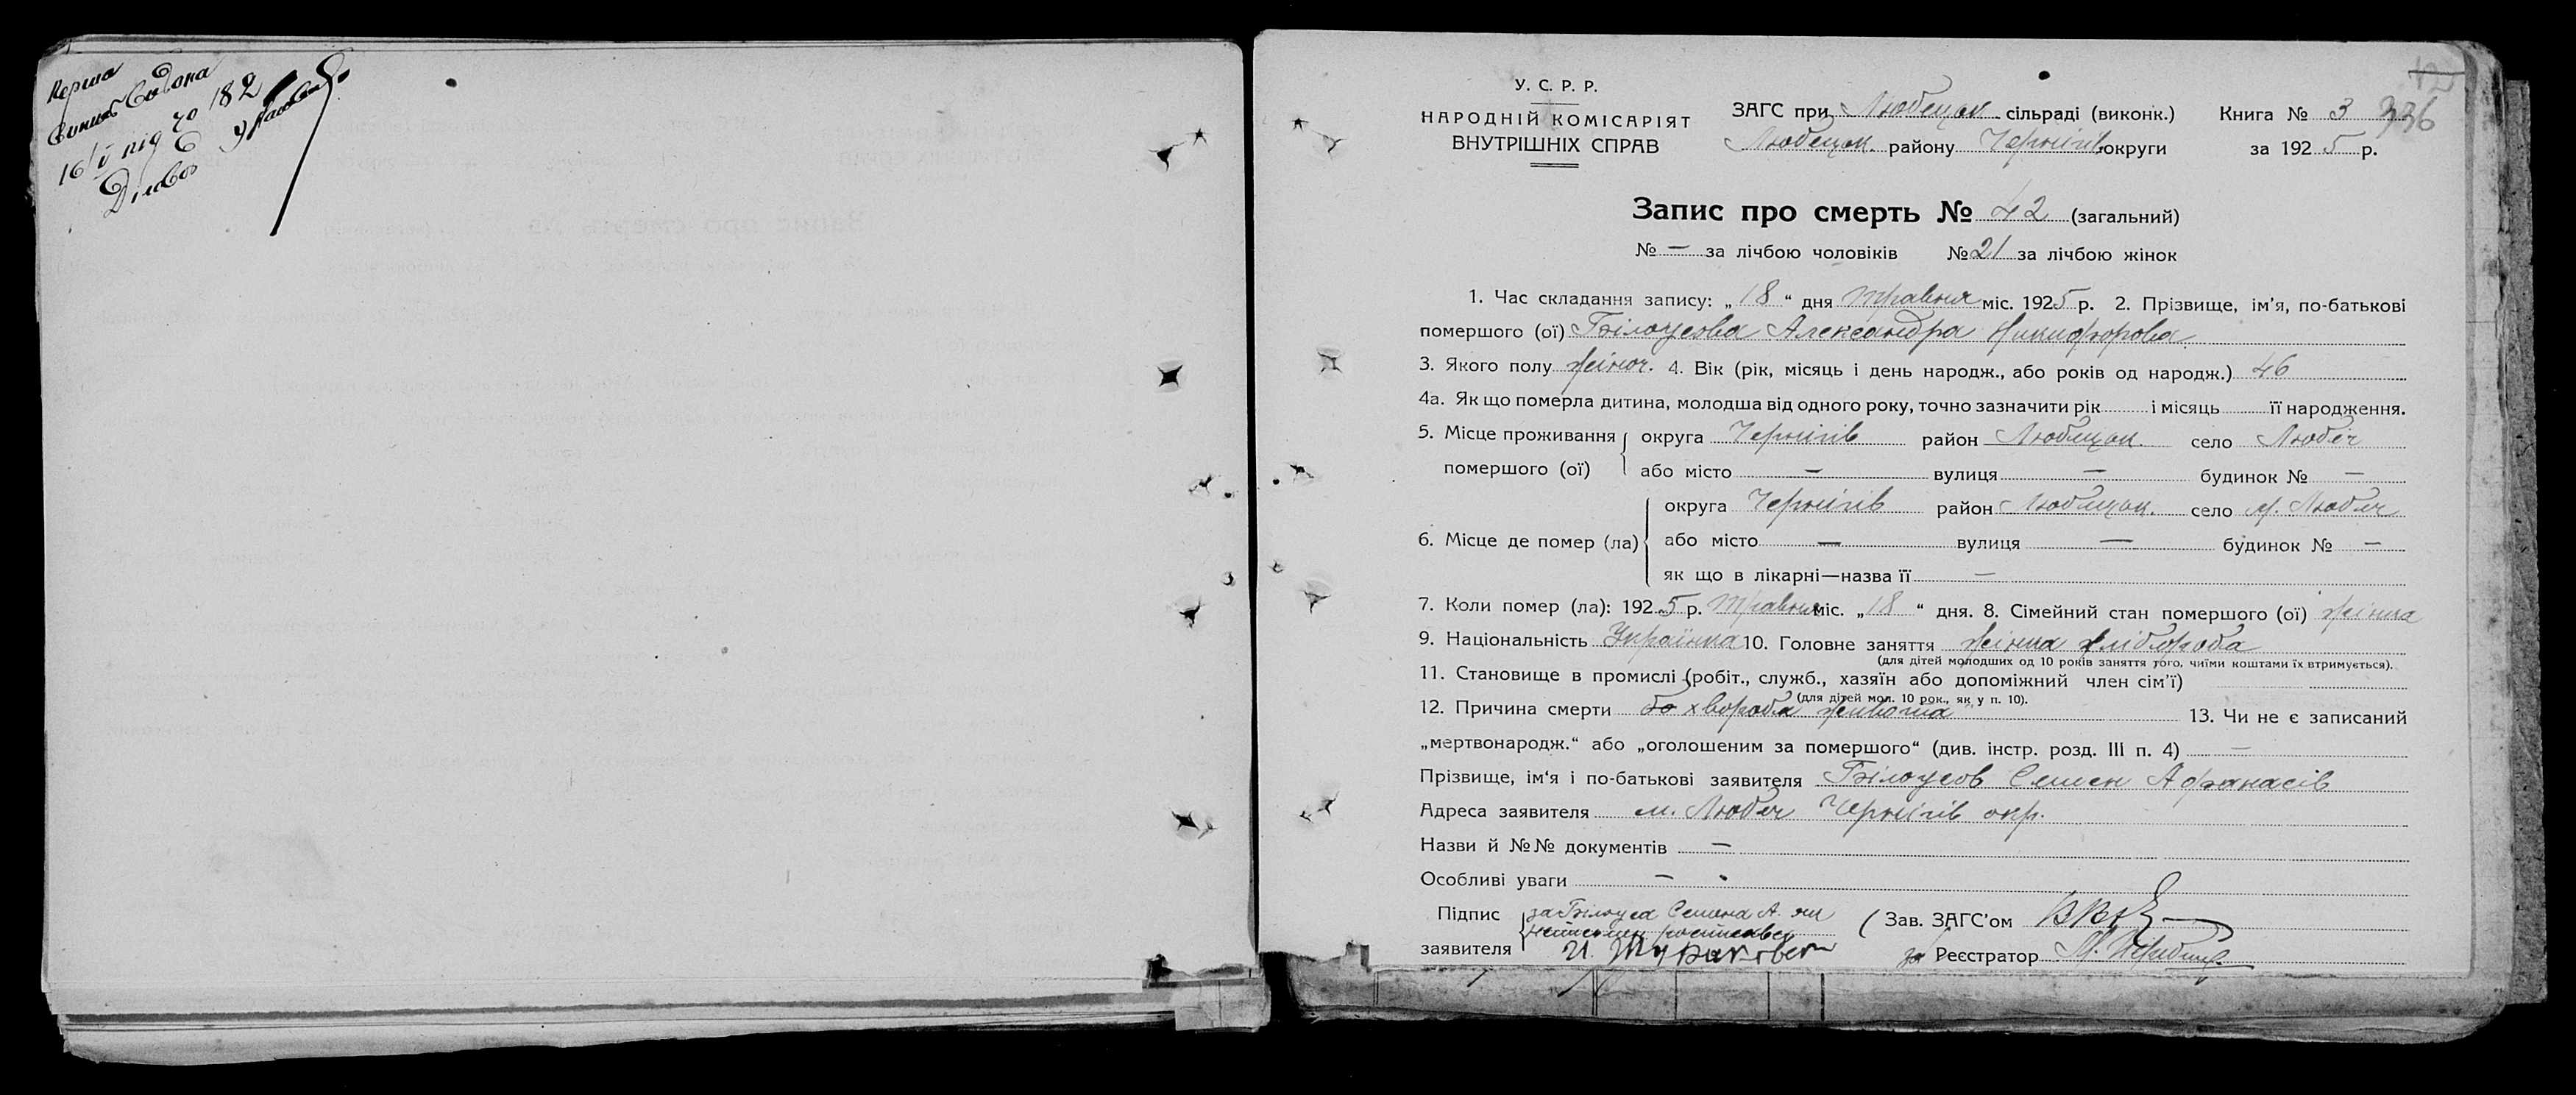 16/V під № 182
У. С. Р. Р.
НАРОДНІЙ КОМІСАРІЯТ
ВНУТРІШНІХ СПРАВ
ЗАГС при Любецьк. сільраді (виконк.)
Любецьк. району Чернігів округи
Книга № 3 336
за 1925 р.
Запис про смерть № 42 (загальний)
№ — за лічбою чоловіків № 21 за лічбою жінок
1. Час складання запису: „18“ дня травня міс. 1925 р. 2. Прізвище, ім’я, по-батькові
помершого (ої) Білоусова Александра Никифорова
3. Якого полу жіноч. 4. Вік (рік, місяць і день народж., або років од народж.) 46
4а. Як що померла дитина, молодша від одного року, точно зазначити рік і місяць її народження.
5. Місце проживання округа Чернігів район Любецьк. село Любеч
помершого (ої) або місто — вулиця — будинок № —
округа Чернігів район Любецьк. село м. Любеч
6. Місце де помер (ла) або місто — вулиця — будинок № —
як що в лікарні—назва її —
7. Коли помер (ла): 1925 р. Травня міс. „18“ дня. 8. Сімейний стан помершого (ої) жінка
9. Національність Українка 10. Головне заняття жінка хлібороба
(для дітей молодших од 10 років заняття того, чиїми коштами їх втримується).
11. Становище в промислі (робіт., служб., хазяїн або допоміжний член сім’ї)
(для дітей мол. 10 рок., як у п. 10).
12. Причина смерти хвороба живота 13. Чи не є записаний
„мертвонародж.“ або „оголошеним за помершого“ (див. інстр. розд. III п. 4) —
Прізвище, ім‘я і по-батькові заявителя Білоусов Семен Афанасів
Адреса заявителя м. Любеч Чернігів окр.
Назви й №№ документів —
Особливі уваги —
Підпис за Білоуса Семена А.
заявителя
Зав. ЗАГС’ом
за Реєстратор